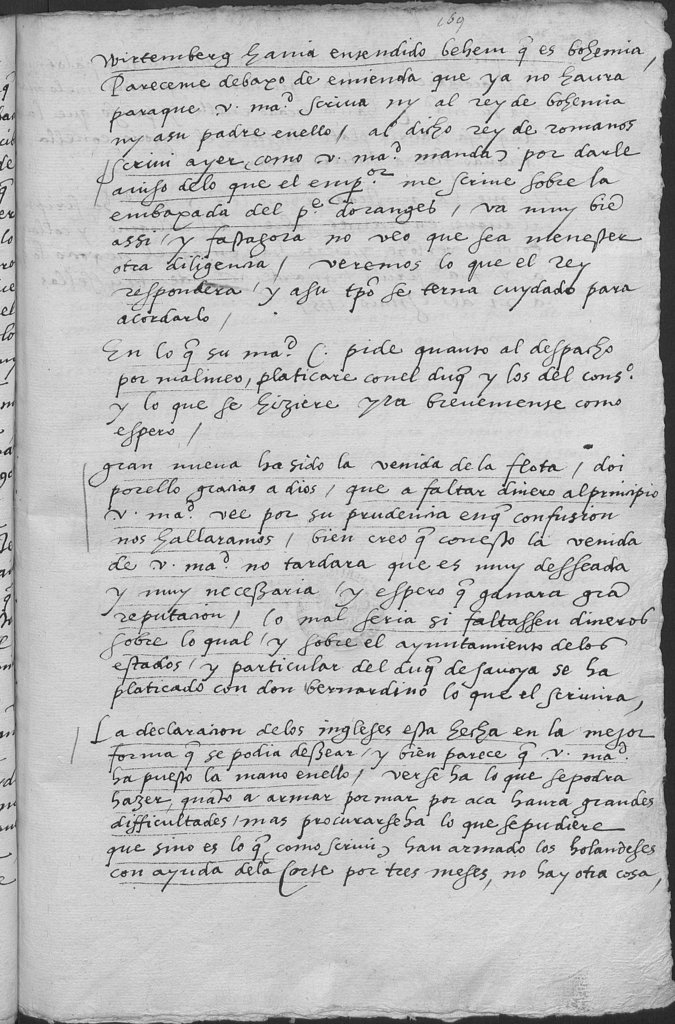 169
Wirtemberg havia entendido behem q̃ es bohemia,
Pareceme debaxo de emienda que ya no havra
paraque v. ma.d scriva ny al rey de bohemia
ny asu padre enello / al dicho rey de romanos
scrivi ayer (como v. ma.d manda) por darle
aviso delo que el emp.or me scrive sobre la
embaxada del p.e doranges / va muy biē
assi / y fastagora no veo que sea menester
otra diligencia / veremos lo que el rey
respondera / y asu tpo se terna cuydado para
acordarlo /
En lo q̃ su ma.d C. pide quanto al despacho
por malineo, platicare conel duq̃ y los del cons.o
y lo que se hiziere yra brevemente como
espero /
gran nueva ha sido la venida de la flota / doi
porello gracias a dios / que a faltar dinero al principio
v. ma.d vee por su prudencia enq̃ confusion
nos hallaramos / bien creo q̃ conesto la venida
de v. ma.d no tardara que es muy desseada
y muy necessaria / y espero q̃ ganara grā
reputacion / lo mal seria si faltassen dineros
sobre lo qual / y sobre el ayuntamiento delos
estados / y particular del duq̃ de savoya se ha
platicado con don bernardino lo que el scrivira,
La declaracion delos ingleses esta hecha en la mejor
forma q̃ se podia dessear / y bien parece q̃ v. ma.d
ha puesto la mano enello / verse ha lo que sepodra
hazer, quāto a armar por mar por aca havra grandes
difficultades / mas procurarseha lo que sepudiere
que sino es lo q̃ (como scrivi) han armado los holandeses
con ayuda dela Corte por tres meses, no hay otra cosa,